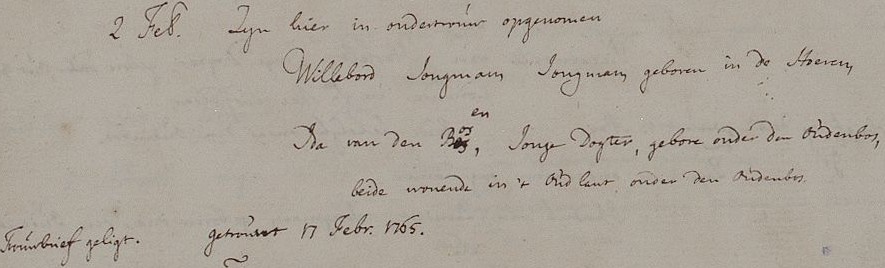 2 Feb. Zyn hier in ondertrouw opgenomen
Willebord Jongmam Jongman geboren in de Hoeven
en
Ida van den Bos, Jonge Dogter, gebore onder den Oùdenbos,
beide wonende in 't Oùd lant onder den Oudenbos.
Trouwbrief geligt. getrouwt 17 Febr. 1765.